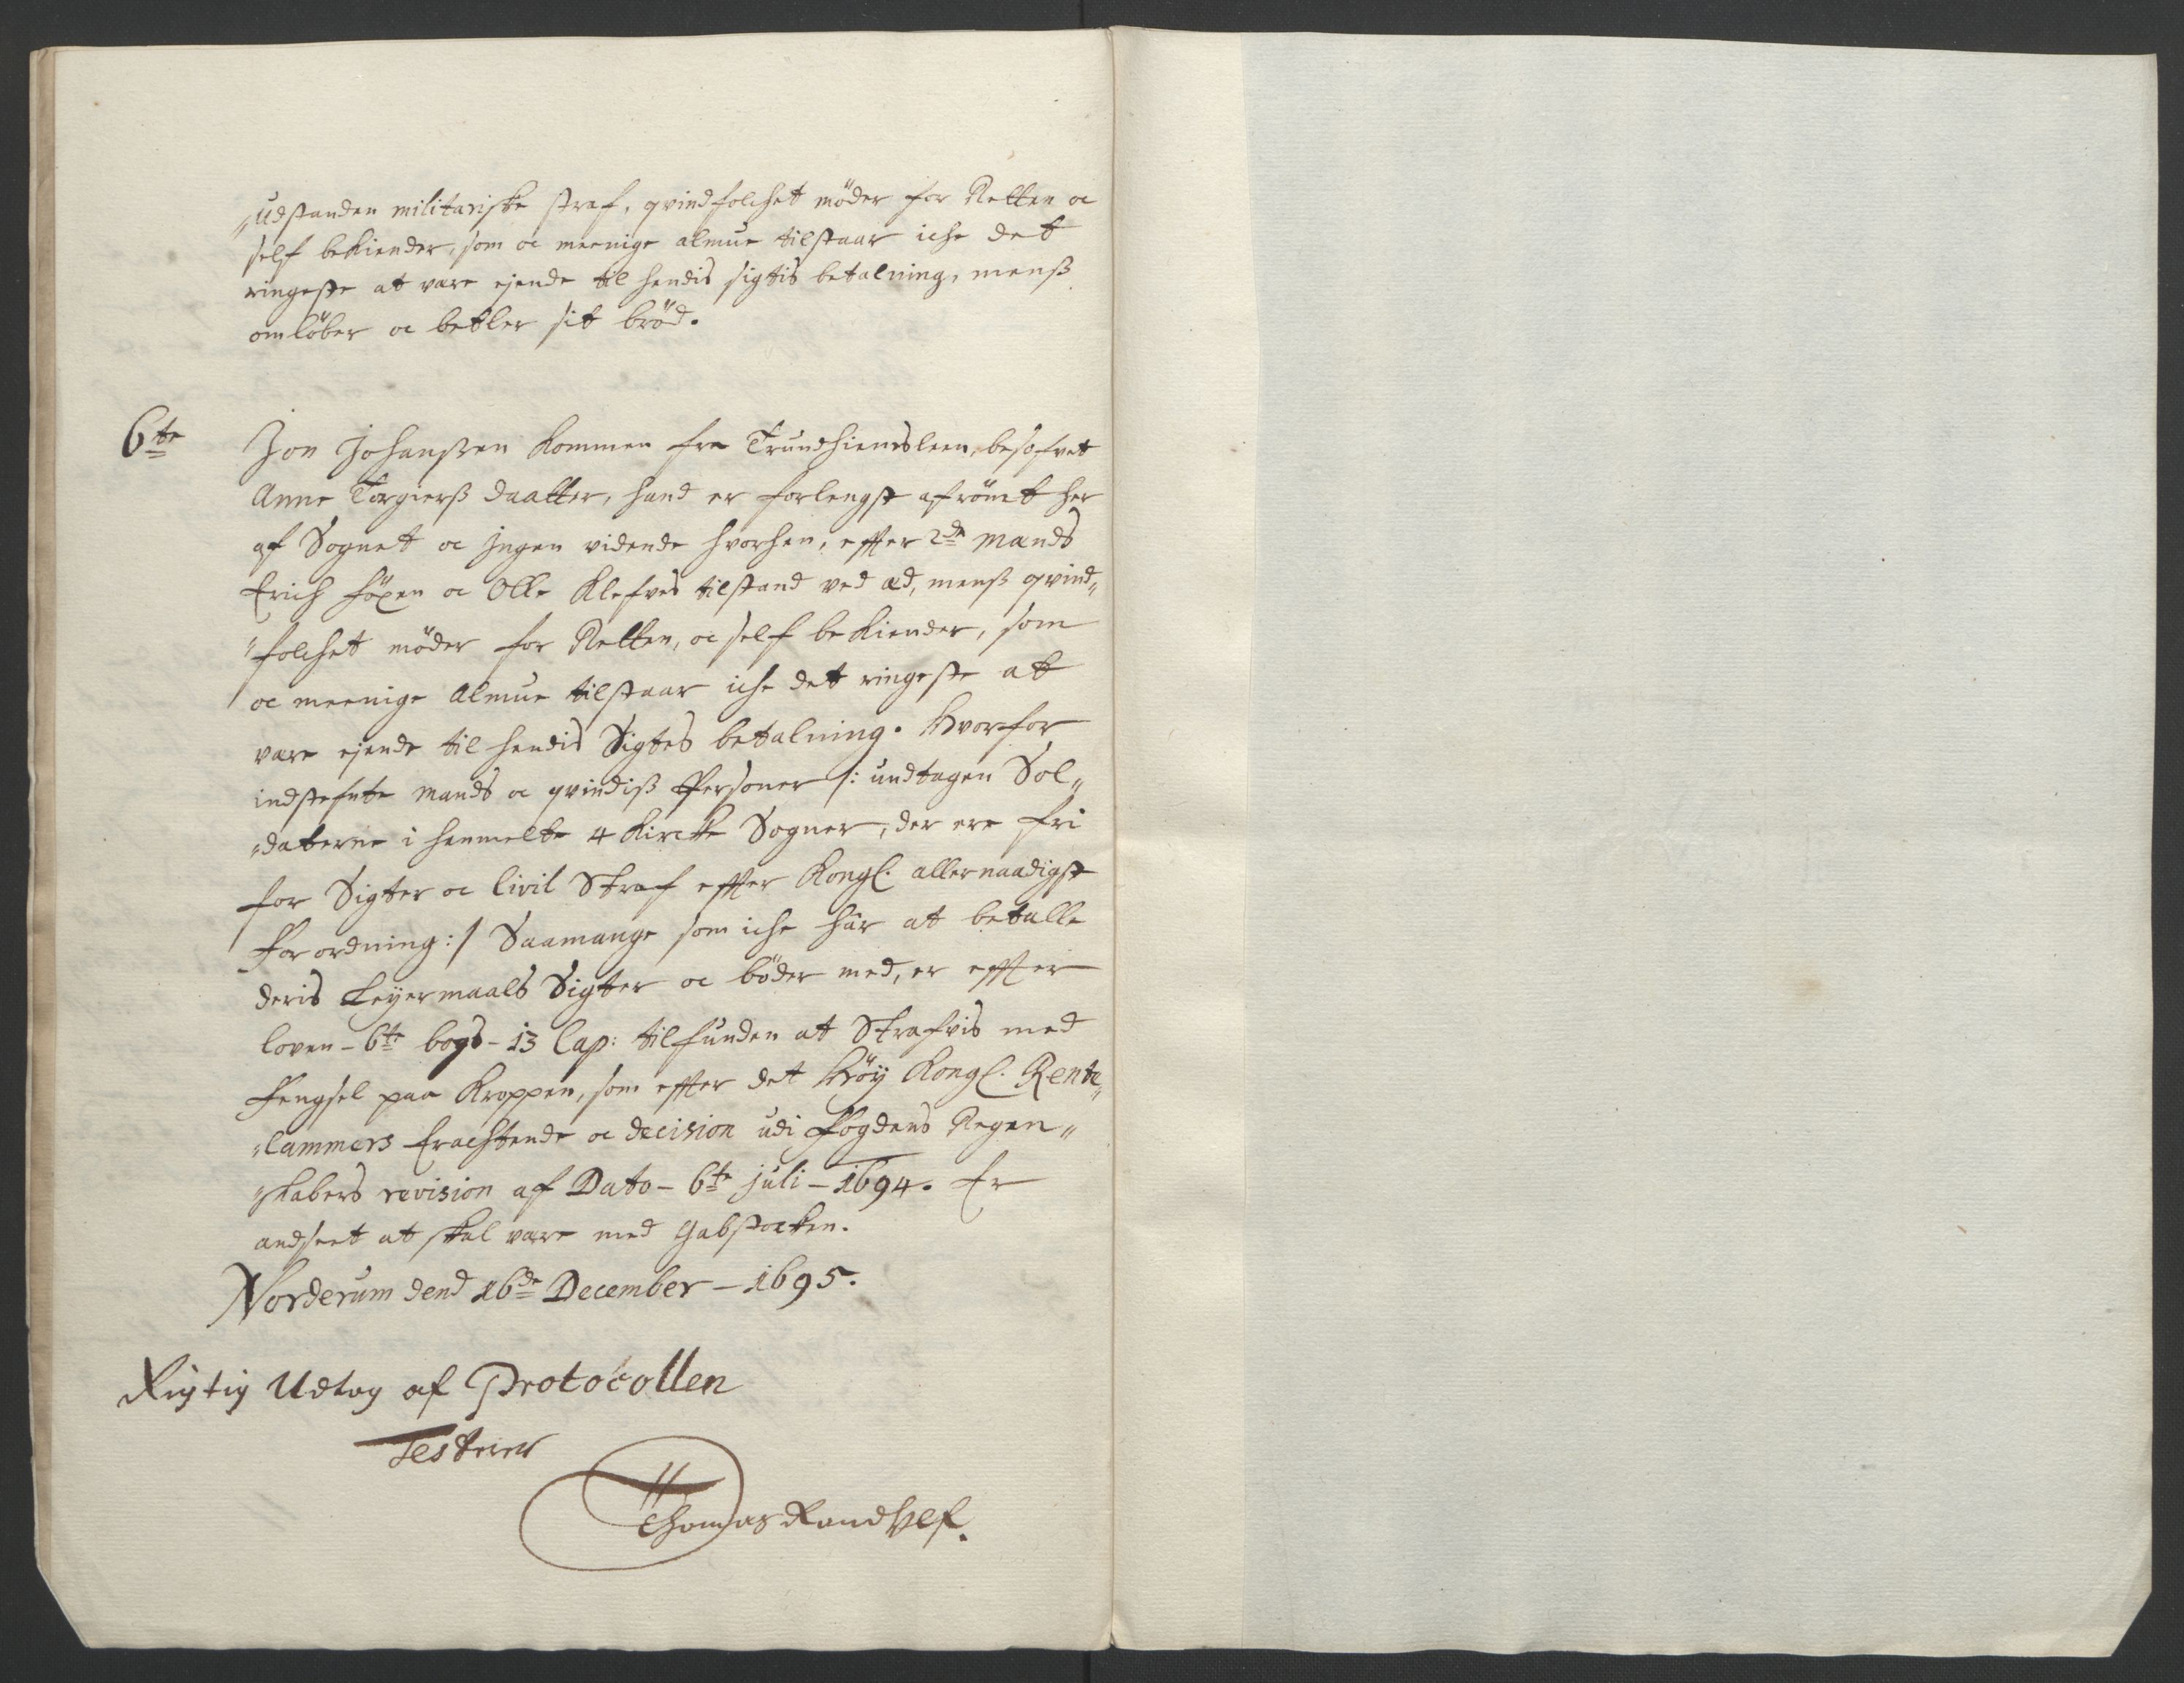 "udstanden militariske straf, qvindfolchet möder for Retten oc
self bekiender, som oc meenige almue tilstaar iche det
ringeste at være ejende til hendis sigtis betalning, menß
omlöber oc betler sit bröd.
6te Jon Johanßen kommen fra Trundhiemsleen, besofvet
Anne Torgierß daatter, hand er forlengst afrömt her
af Sognet oc Ingen vidende hvorhen, effter 2de Mænds
Erich Föxen oc Olle Klefves tilstand ved æd, menß qvind„
"folchet möder for Retten, oc self bekiender, som
oc meenige Almue tilstaar iche det ringeste at
være ejende til hendis Sigtes betalning. Hvorfor
indstefnte mands oc qvindiß Personer /: undtagen Sol„
"daterne i hemmelte 4 Kircke Sogner, der ere fri
for Sigter oc Civil Straf effter Kongl. allernaadigste
Forordning :/ Saamange som iche har at betalle
deris Leyermaals Sigter oc böder med, er effter
loven - 6te bogs - 13 Cap: tilfunden at Strafvis med
Fengsel paa Kroppen, som effter det Höy Kongl. Rente„
"Cammers Erachtende oc decision udi Fogdens Regen„
"skabers revision af Dato - 6te juli - 1694. Er
andseet at skal være med Gabstocken.
Norderum dend 16de December - 1695.
Rigtig Udtog af Protocollen
Testerer
Thomas Randulf.